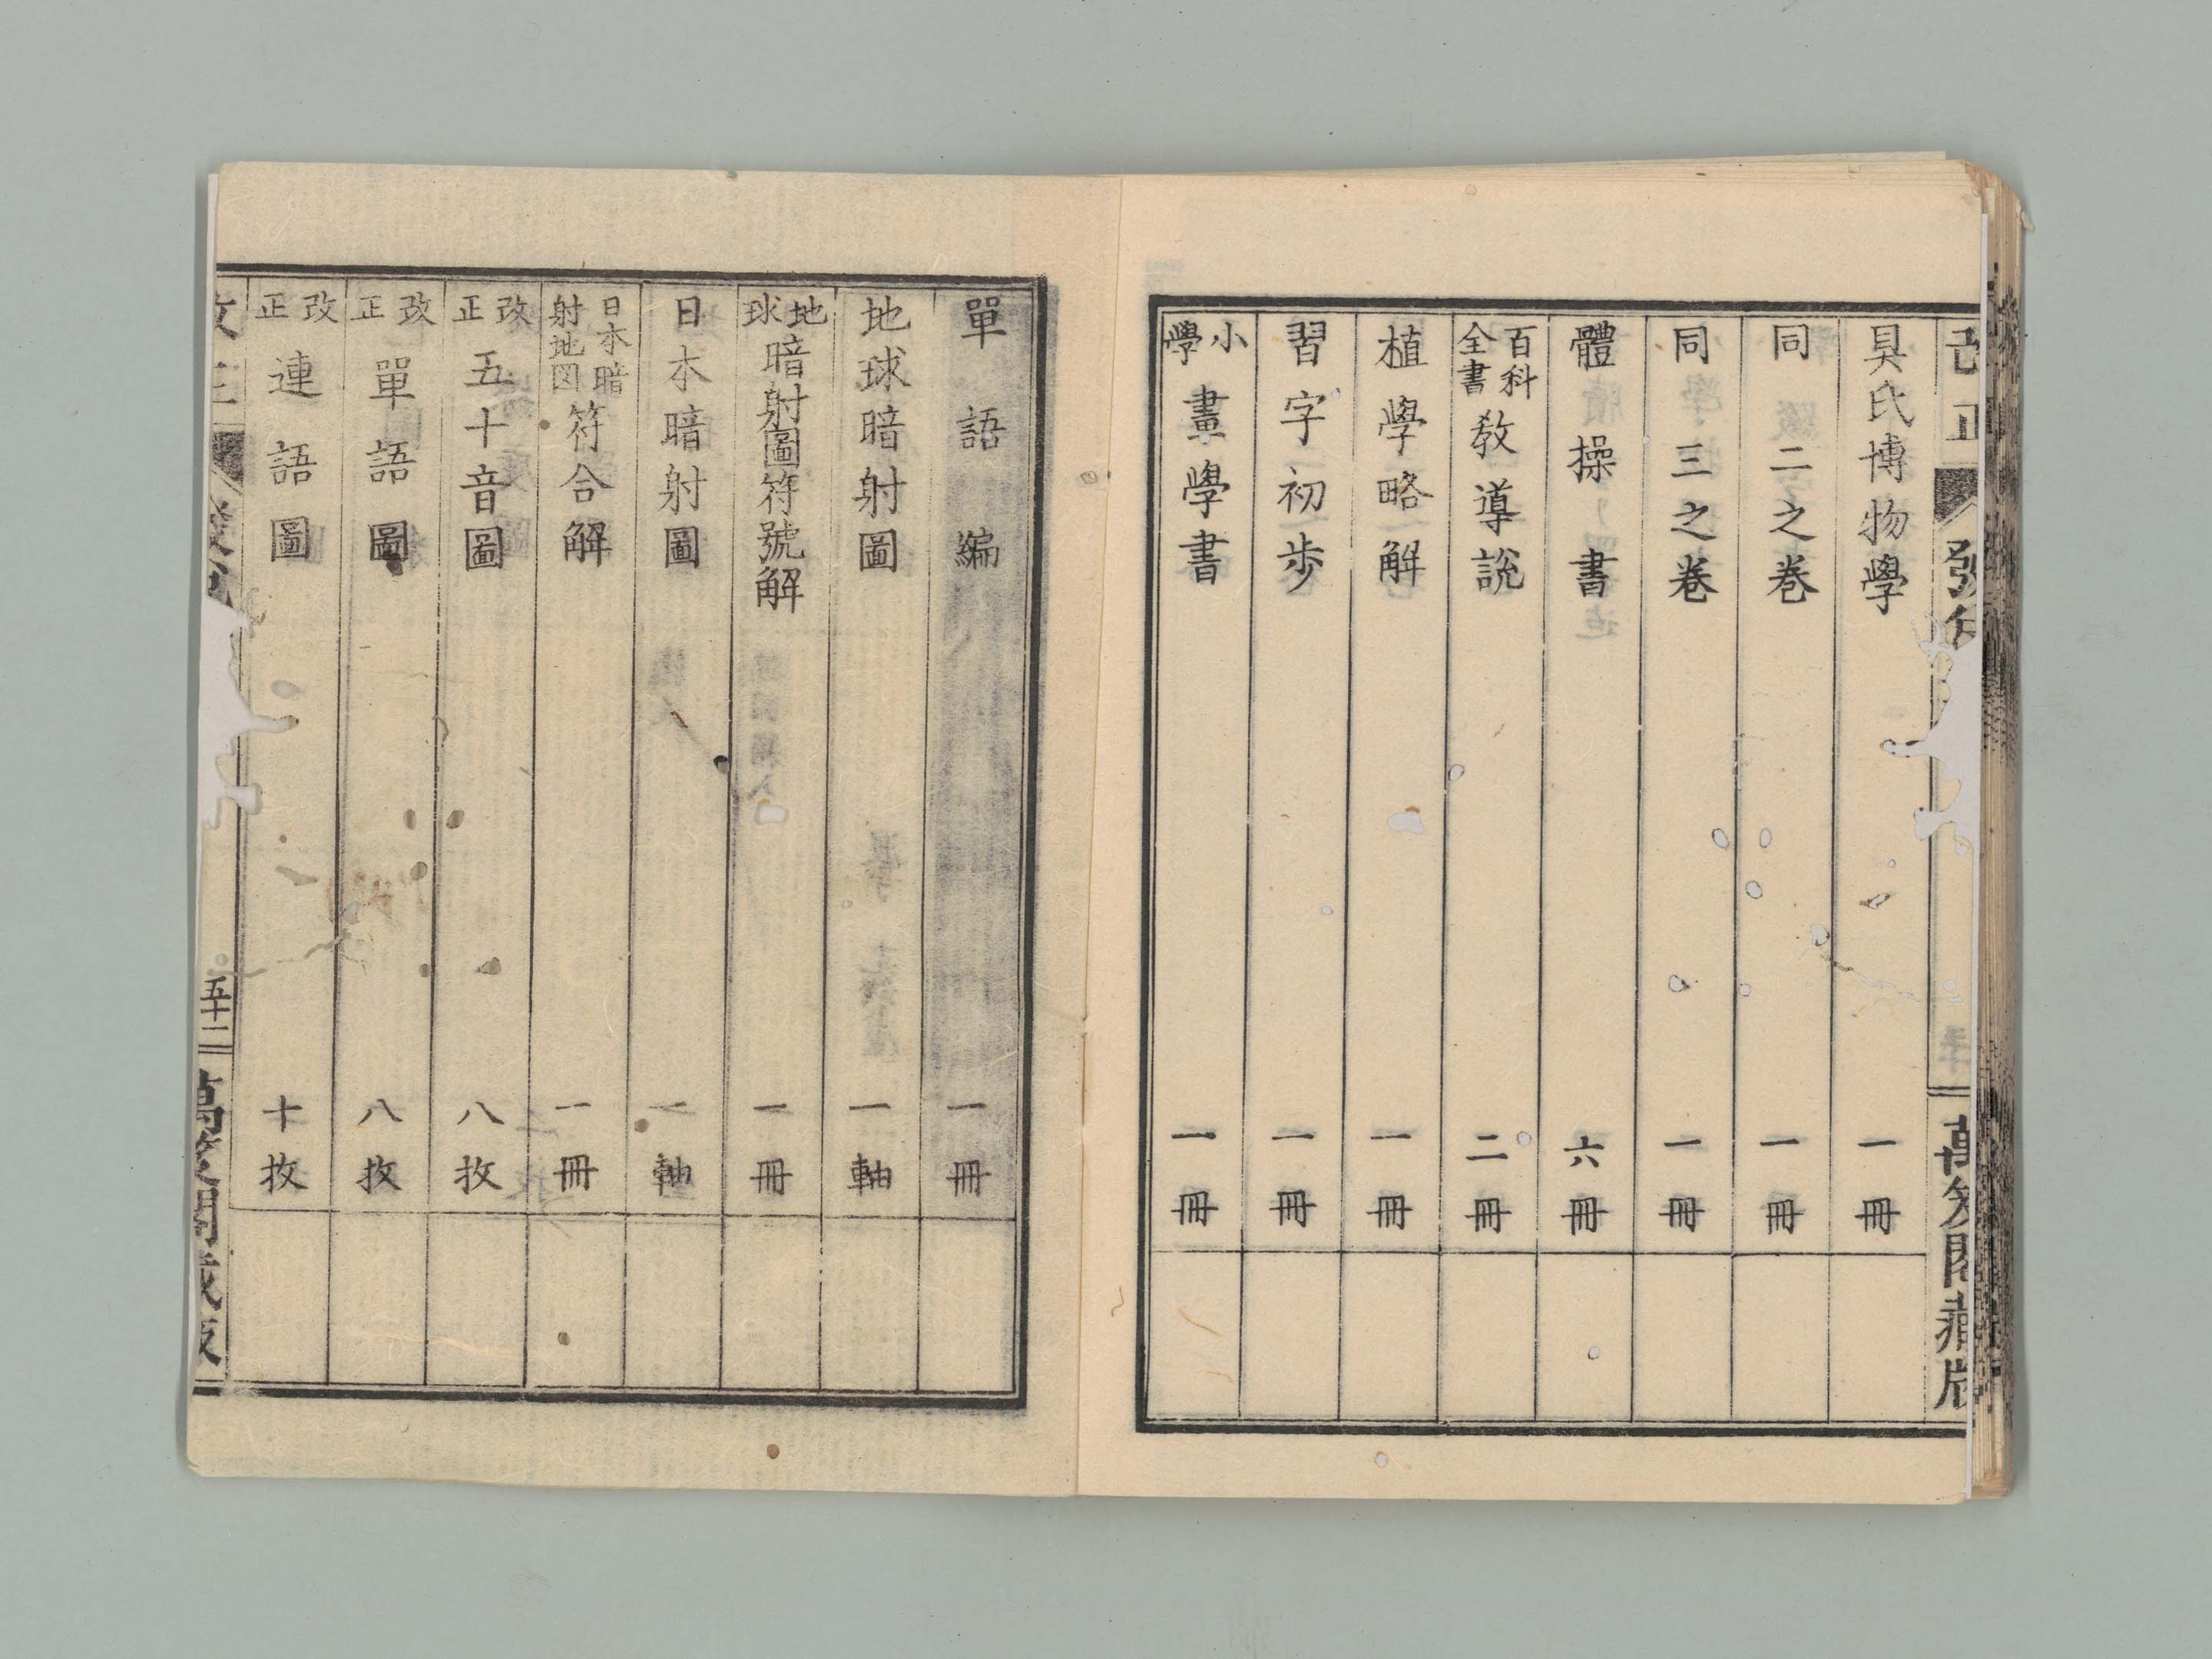 具氏博物學 一冊
同 二之卷 一冊
同 三之卷 一冊
體操書 六冊
百科全書 敎導說 二冊
植學略解 一冊
習字初步 一冊
小學 畫學書 一冊
單語編 一冊
地球暗射圖 一軸
地球 暗射圖符號解 一冊
日本暗射圖 一軸
日本暗射地図 符合解 一冊
改正 五十音圖 八枚
改正 單語圖 八枚
改正 連語圖 十枚
五十二